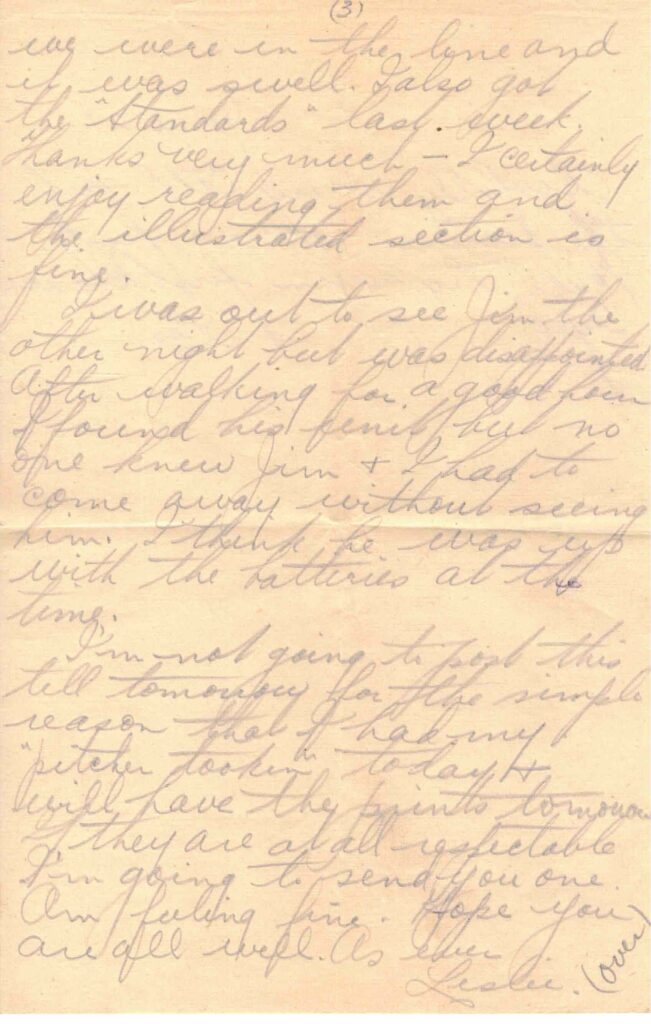 (3)
we were in the line and
it was swell. I also got
the "Standards" last week.
Thanks very much – I certainly
enjoy reading them and
the illustrated section is
fine.
I was out to see Jim the
other night but was disappointed
After walking for a good hour
I found his unit but no
one knew Jim + I had to
come away without seeing
him. I think he was up
with the batteries at the
time.
I'm not going to post this
till tomorrow for the simple
reason that I had my
"pitcher tooken" today +
will have the prints tomorrow
If they are at all respectable
I'm going to send you one.
Am feeling fine. Hope you
are all well. As ever
Leslie. (over)